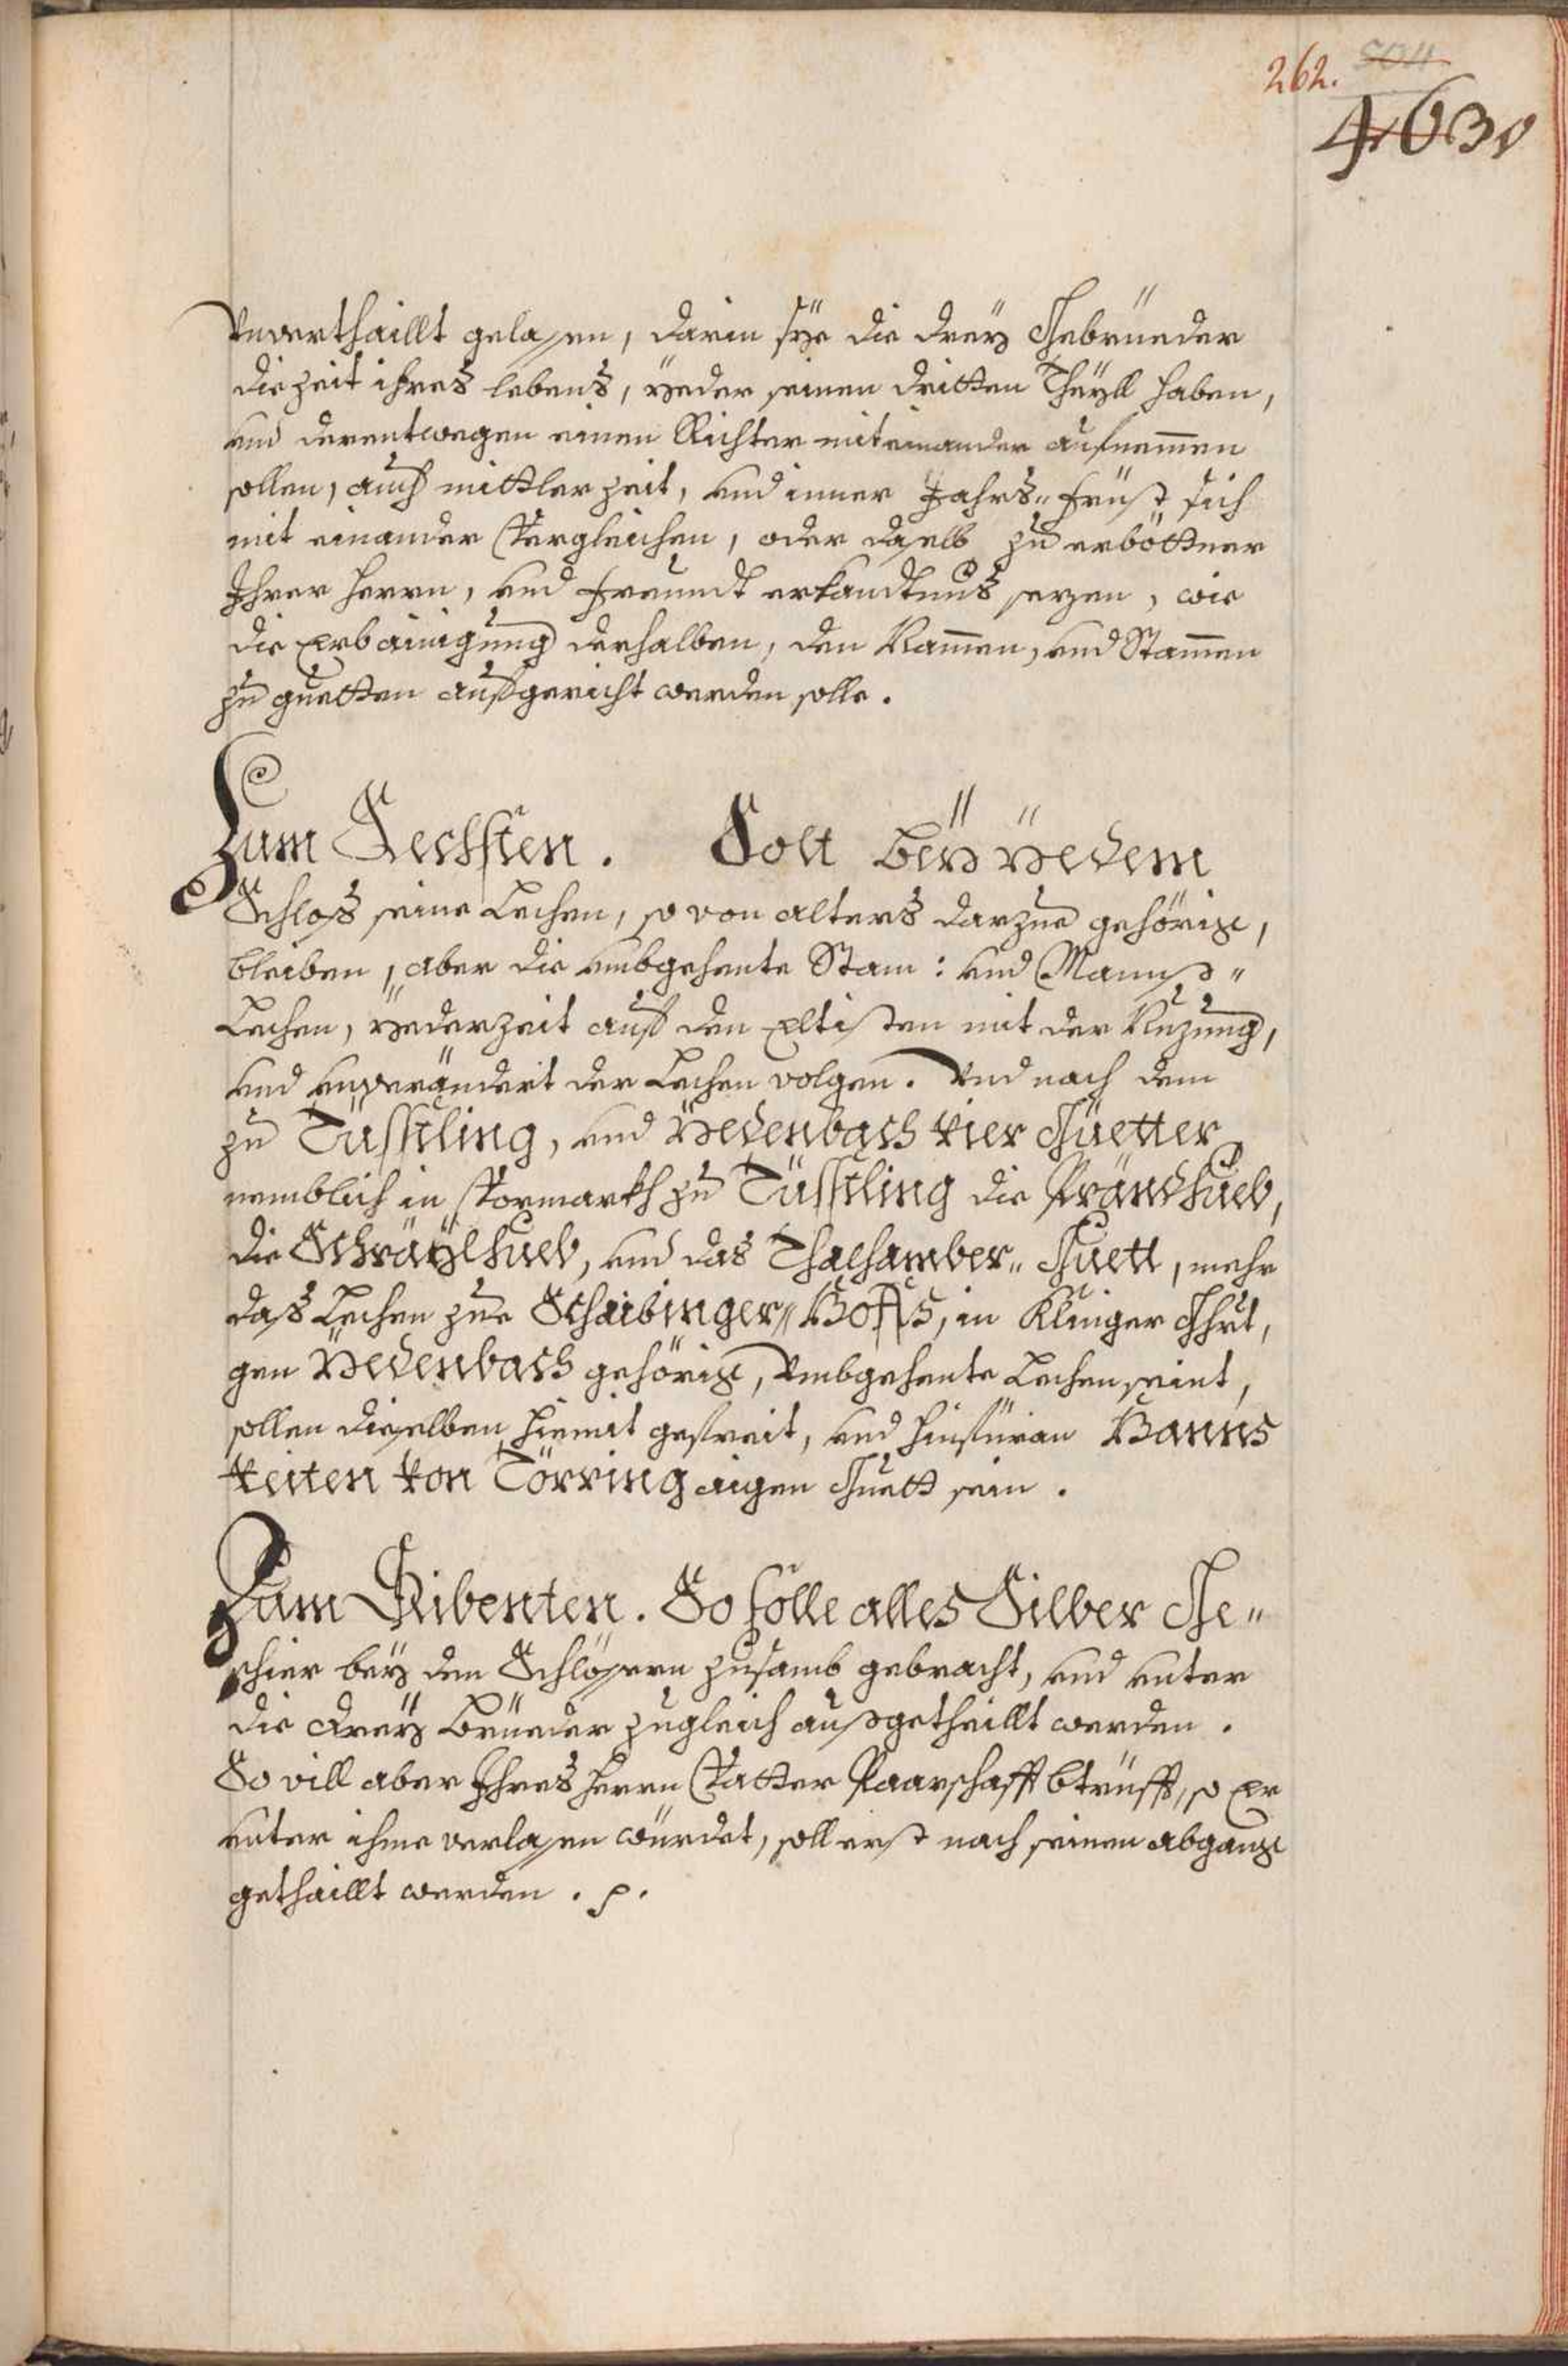 262. 504
463v
Unverthaillt gelassen, darin sÿe die dreÿ Gebrüeder
die zeit ihres lebens, ÿeder seinen dritten Theÿll haben,
und derentwegen einen Richter miteinander aufnemmen
sollen, auch mittler zeit, und inner Jahrs„ frist sich
mit einander Vergleichen, oder daselb zu erböttner
Ihrer herrn, und freundt erkandtnus sezen, wie
die Erbainigung deshalben, den Nammen, und Stammen
zu guetten aufgericht werden solle.
Zum Sechsten. Soll beÿ ÿedem
Schloß seine Lechen, so von alters darzue gehörig,
bleiben, aber die umbgehente Stam: und Manns„
Lechen, ÿederzeit auf den Eltisten mit der Nuzung,
und unverändert der Lechen volgen. Und nach dem
zu Tüssling, und ÿedenbach vier Güetter
nemblich in Vormarkh zu Tüssling die Prändhueb,
die Schräÿlhueb, und das Thalhamber„ Guett, mehr
das Lechen zue Schaibinger„ Hoffs, in Klinger Ghrt,
gen ÿedenbach gehörig, Umbgehente Lechen seint,
sollen dieselben hiemit gefreit, und hinfüran Hanns
Veiten von Törring aigen Guett sein.
Zum Sibenten. So solle alles Silber Ge„
schier beÿ den Schlössern zusamb gebracht, und unter
die dreÿ Brüeder zugleich außgetheillt werden.
So vill aber Ihres herrn Vatter Paarschafft btrüfft, so Er
unter ihme verlassen würdet, soll erst nach seinen abgang
gethaillt werden. p.